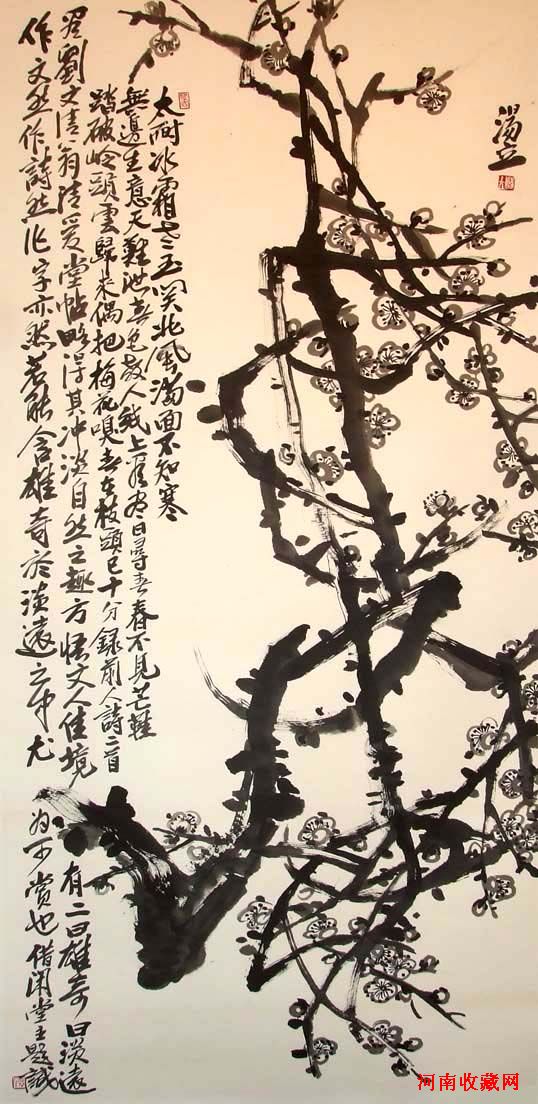 湯立
太耐冰霜玉関北風满面不知寒
無邊生意天難泄春色教人紙上看尽日尋春春不見芒鞋
踏破岭頭雲歸来偶把梅花嗅春在枝頭已十分録前人詩二首
劉文清翁清爱堂帖略得其冲淡自然之趣方悟文人佳境
有二曰雄奇曰淡遠
作文然作詩然作字亦然若能含雄奇於淡遠之中尤
为可賞也借閑堂主題識
河南收藏网